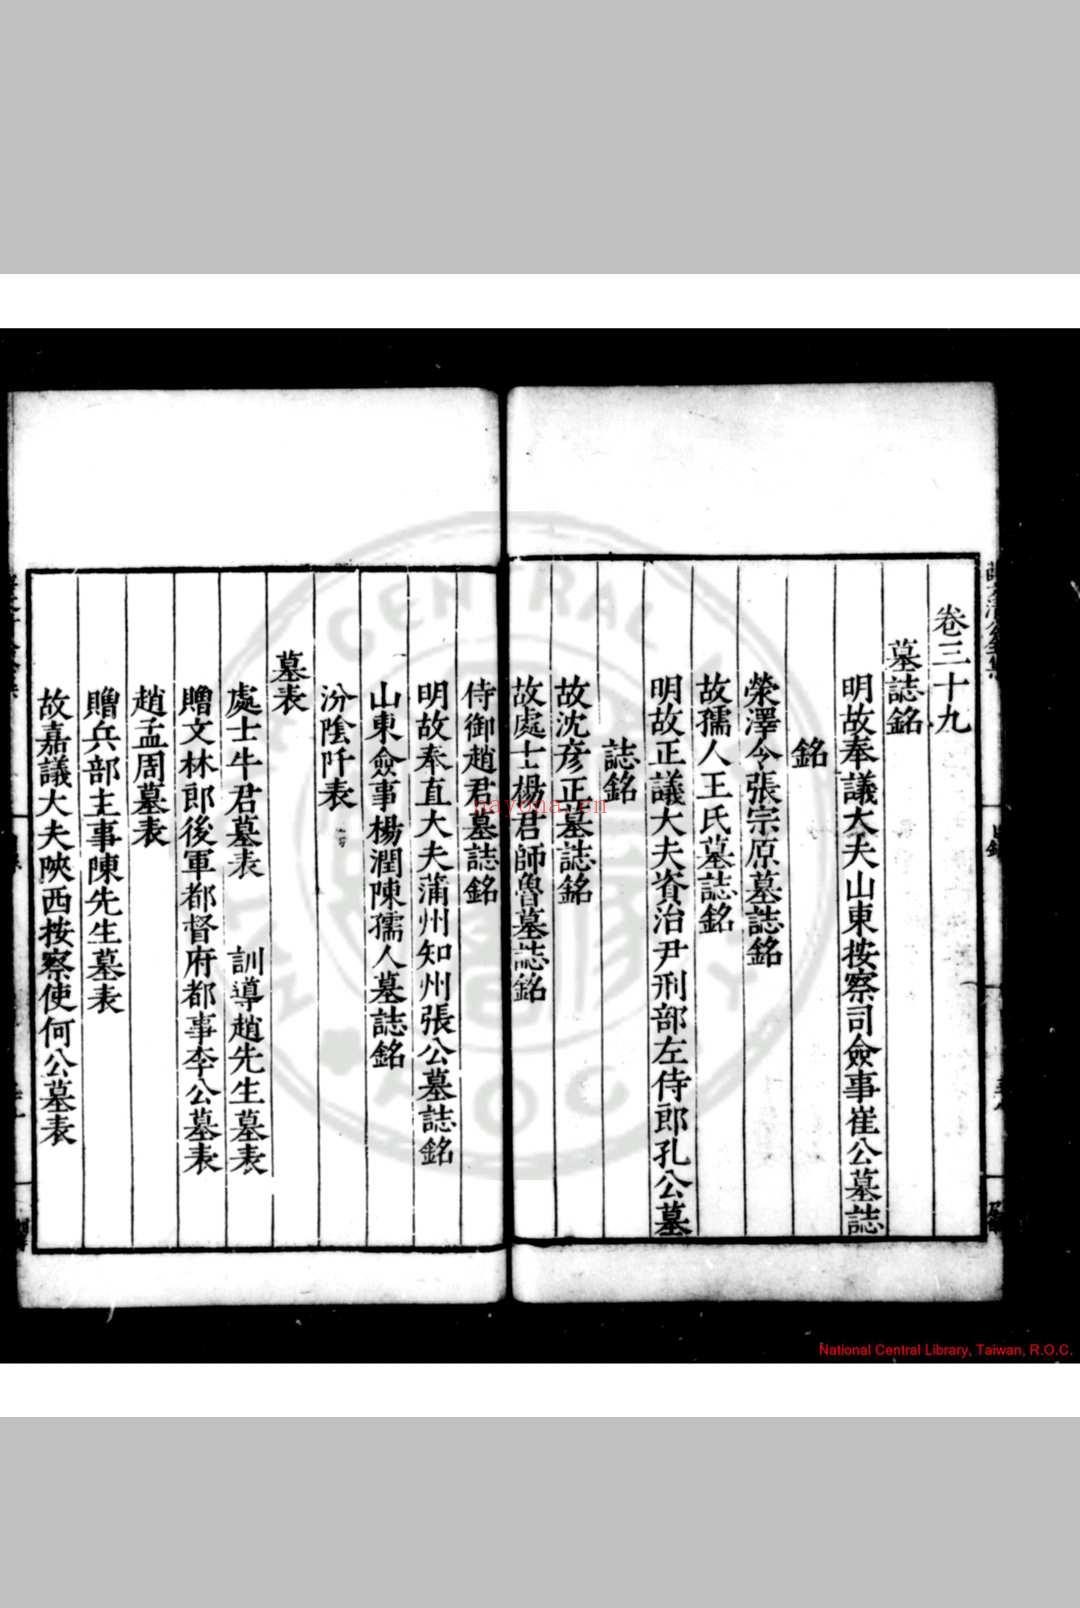 卷三十九
墓誌銘
明故奉議大夫山東按察司僉事崔公墓誌
銘
滎澤令張宗原墓誌銘
故孺人王氏墓誌銘
明故正議大夫資治尹刑部左侍郎孔公墓
誌銘
故沈彦正墓誌銘
故處士楊君師魯墓誌銘
侍御趙君墓誌銘
明故奉直大夫蒲州知州張公墓誌銘
山東僉事楊潤陳孺人墓誌銘
汾陰阡表
墓表
處士牛君墓表 訓導趙先生墓表
贈文林郎後軍都督府都事李公墓表
趙孟周墓表
贈兵部主事陳先生墓表
故嘉議大夫陝西按察使何公墓表
CENTRAL
nayona.cn
National Central Library, Taiwan, R.O.C.